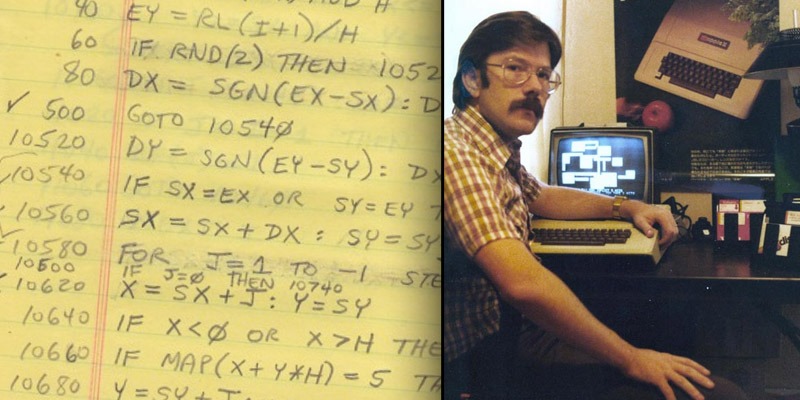 40 EY = RL(I+1)/H
60 IF RND(2) THEN 1052
80 DX = SGN(EX-SX): D
✓ 500 GOTO 1054Ø
10520 DY = SGN(EY-SY): DX
10540 IF SX=EX OR SY=EY T
10560 SX = SX + DX : SY = SY
10580 FOR J=1 TO -1 STE
10500 IF J=Ø THEN 10740
10620 X = SX + J : Y=SY
10640 IF X<Ø OR X>H THE
10660 IF MAP(X + Y*H) = 5 TH
10680 Y = SY + J :